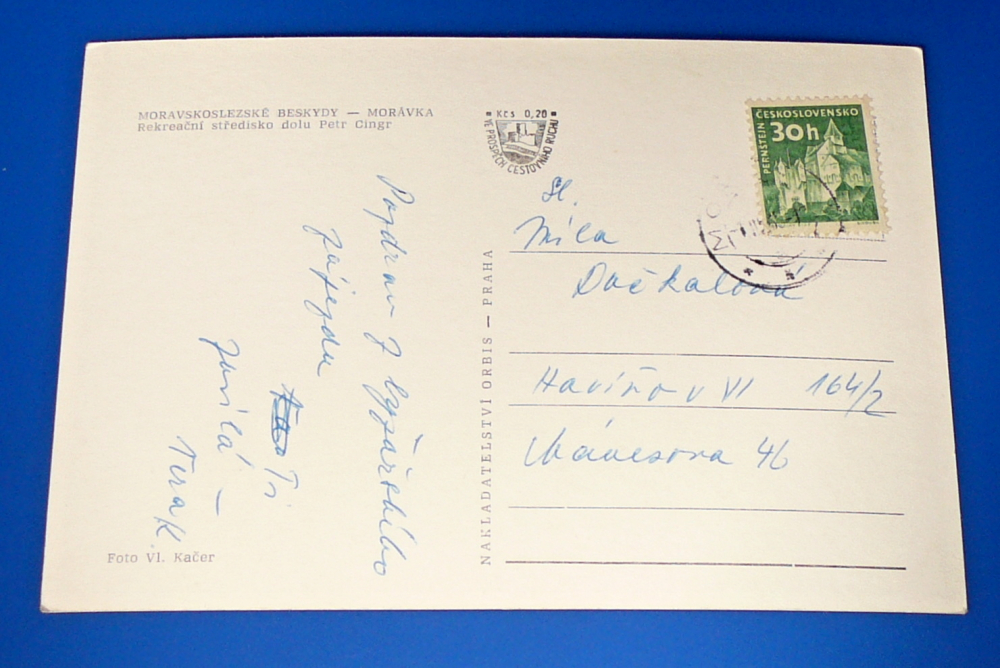 MORAVSKOSLEZSKÉ BESKYDY — MORÁVKA
Rekreační středisko dolu Petr Cingr
Kčs 0,20
VE PROSPĚCH CESTOVNÍHO RUCHU
ČESKOSLOVENSKO
PERNŠTEJN
30h
Pozdrav z lyžařského
zájezdu
Ti
zasílá –
Věra K.
Foto Vl. Kačer
NAKLADATELSTVÍ ORBIS — PRAHA
Sl.
Míla
Dočkalová
Havířov VI 164/2
Mánesova 46